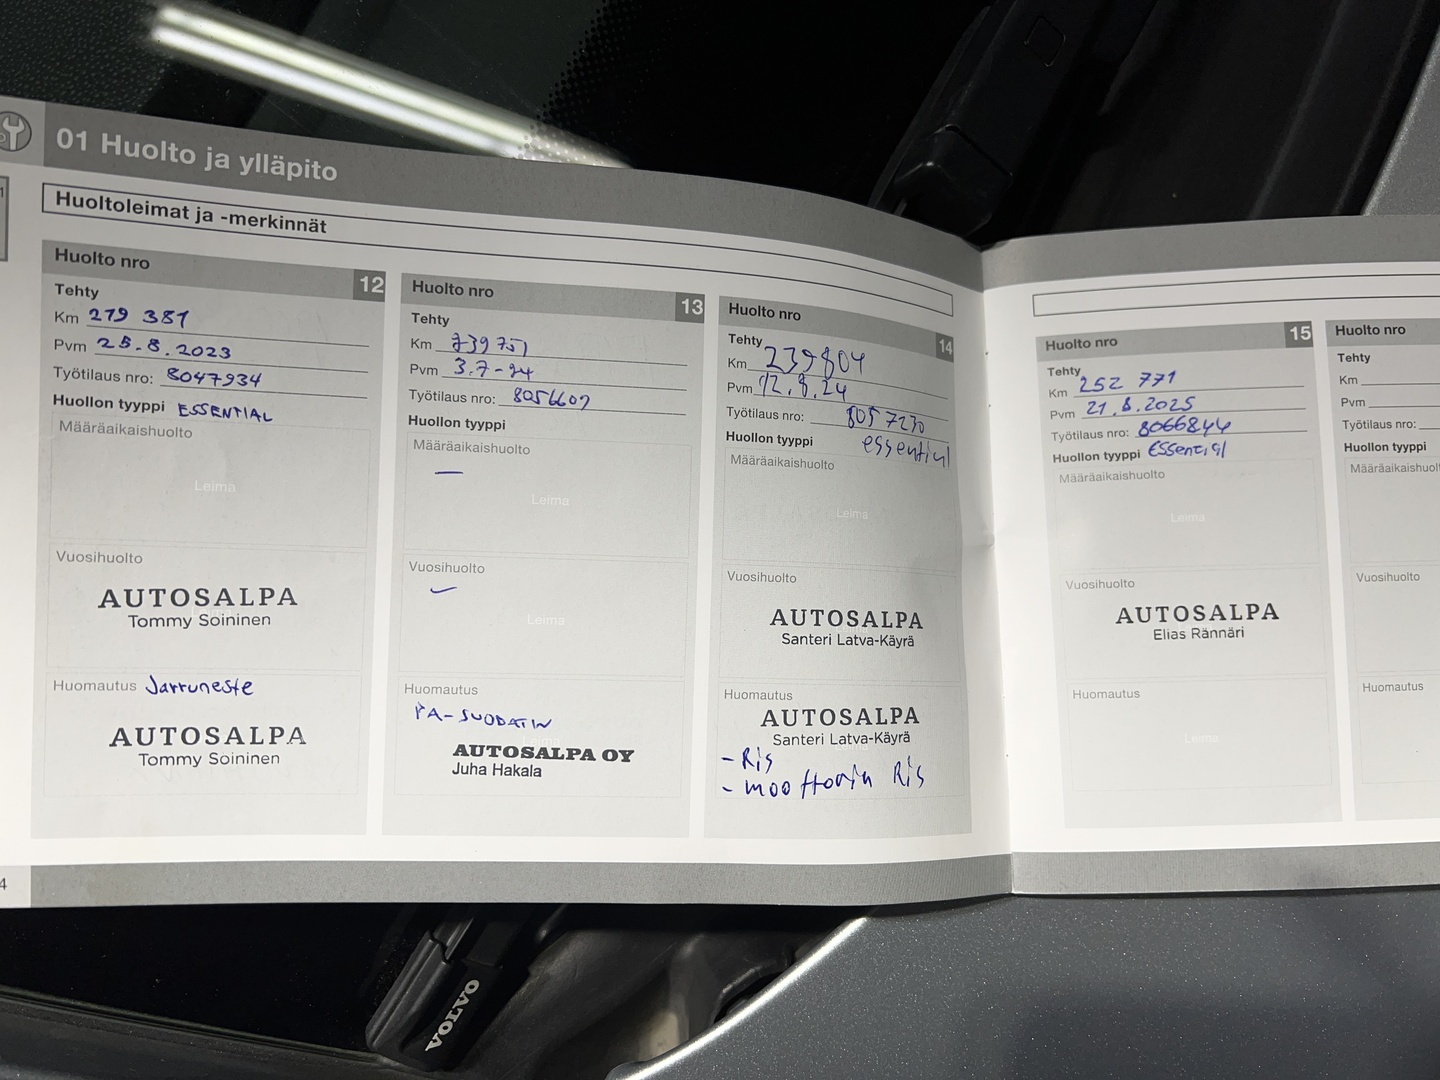 01 Huolto ja ylläpito
Huoltoleimat ja -merkinnät
Huolto nro 12
Tehty
Km 219 381
Pvm 25.8.2023
Työtilaus nro: 8047934
Huollon tyyppi ESSENTIAL
Määräaikaishuolto
Leima
Vuosihuolto
AUTOSALPA
Tommy Soininen
Huomautus Jarruneste
AUTOSALPA
Tommy Soininen
Huolto nro 13
Tehty
Km 239751
Pvm 3.7-24
Työtilaus nro: 8056607
Huollon tyyppi
Määräaikaishuolto
Leima
Vuosihuolto
Leima
Huomautus
PA-SUODATIN
AUTOSALPA OY
Juha Hakala
Huolto nro 14
Tehty
Km 239804
Pvm 12.8.24
Työtilaus nro: 8057230
Huollon tyyppi essential
Määräaikaishuolto
Leima
Vuosihuolto
AUTOSALPA
Santeri Latva-Käyrä
Huomautus
AUTOSALPA
Santeri Latva-Käyrä
- Ris
- moottorin Ris
Huolto nro 15
Tehty
Km 252 771
Pvm 21.8.2025
Työtilaus nro: 8066844
Huollon tyyppi Essential
Määräaikaishuolto
Leima
Vuosihuolto
AUTOSALPA
Elias Rännäri
Huomautus
Leima
Huolto nro
Tehty
Km
Pvm
Työtilaus nro:
Huollon tyyppi
Vuosihuolto
Huomautus
4
VOLVO